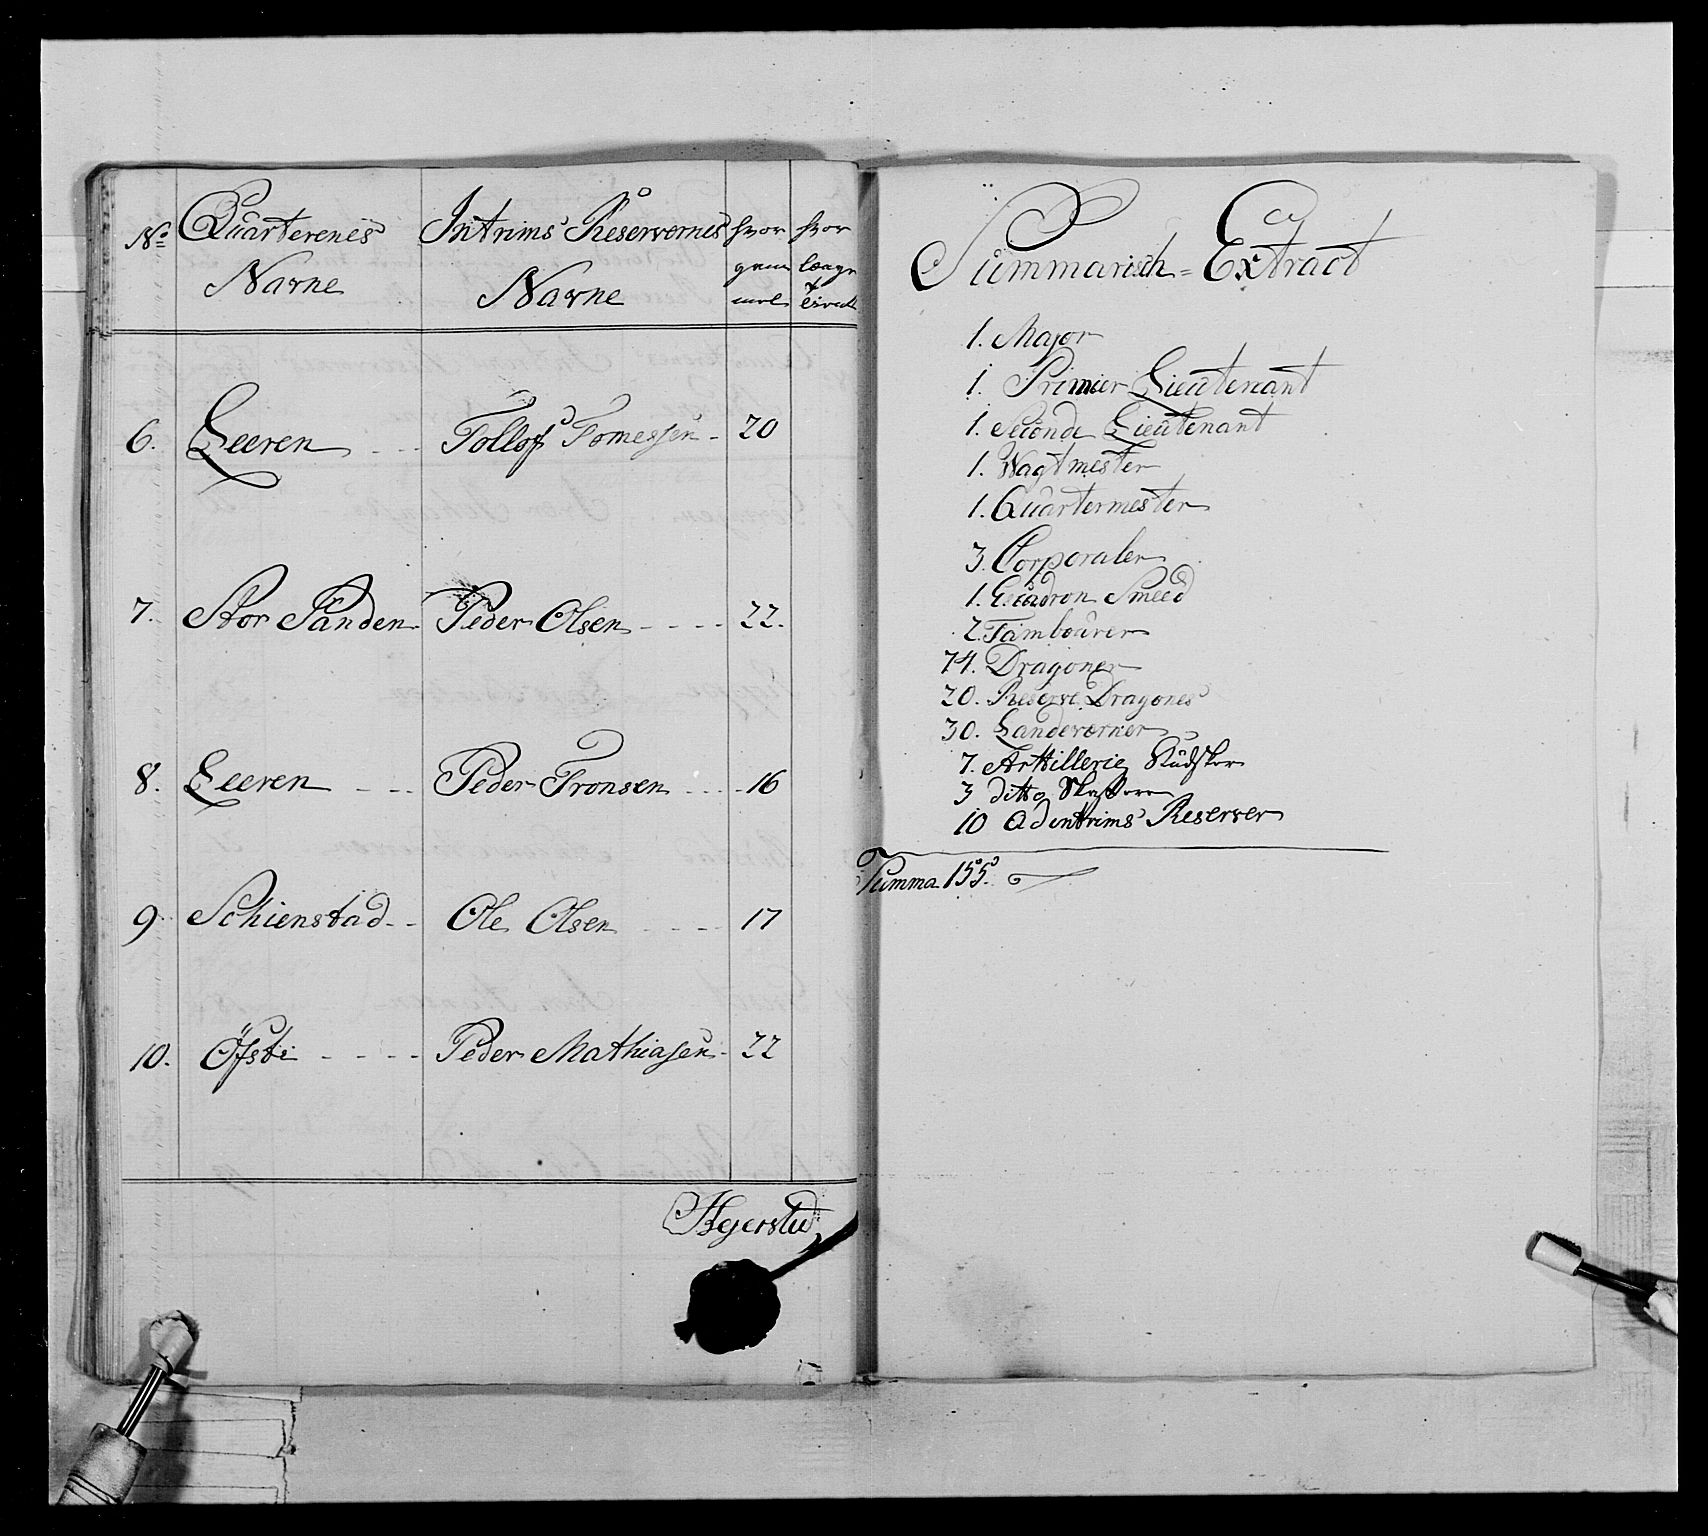 No Quarterenes Navne Intrims Reservernes Navne hvor hvor længe
6. Leeren Tollof Tomessen 20
7. Stor Sanden Peder Olsen 22.
8. Leeren Peder Tronsen 16
9 Schienstad Ole Olsen 17
10. Öfste Peder Mathiasen 22
Hegersted
Summarisch = Extract
1. Major
1. Primier Lieutenant
1. Seconde Lieutenant
1. Wagtmester
1. Quartermester
3. Corporaler
1. Escadron Smeed
2. Tambourer
74. Dragoner
20. Reserve Dragones
30. Landeværner
7. Artillerie Kudsker
3 ditto
10 Ad intrims Reserver
Summa 155.